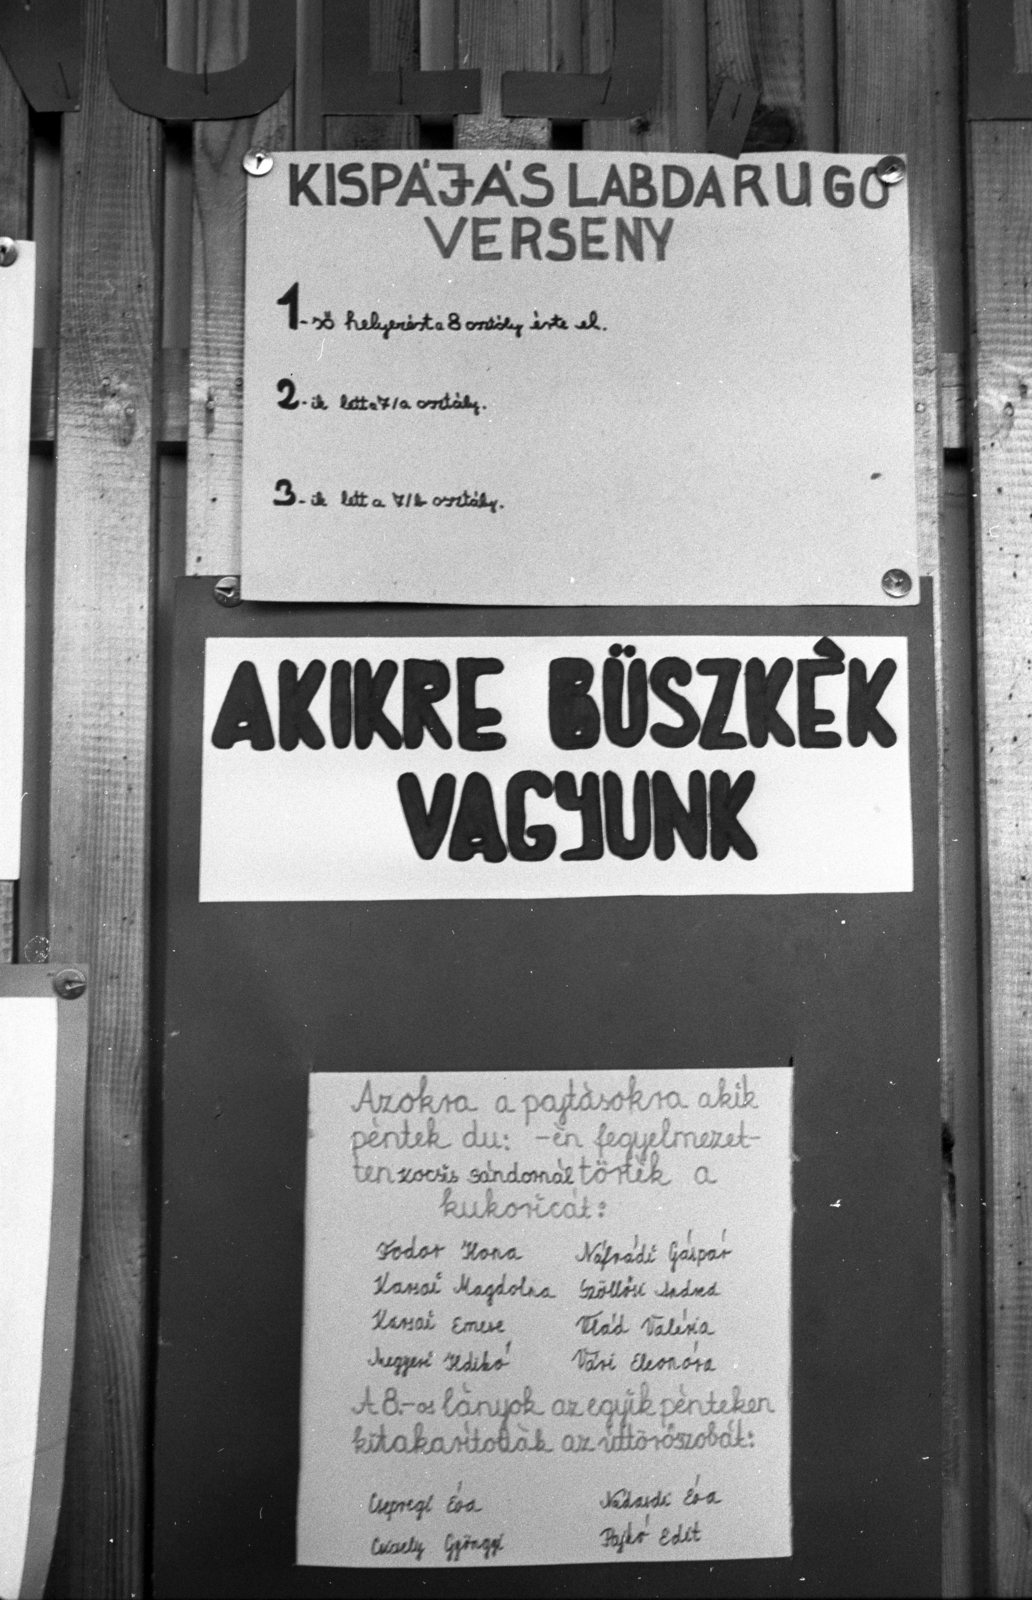 KISPÁJÁS LABDARUGÓ
VERSENY
1-ső helyezést a 8 osztály érte el.
2-ik lett a 7/a osztály.
3-ik lett a 7/b osztály.
AKIKRE BÜSZKÉK
VAGYUNK
Azokra a pajtásokra akik
péntek du: -én fegyelmezet-
ten kocsis sándornál törték a
kukoricát:
Fodor Ilona Náfrádi Gáspár
Kassai Magdolna Szöllősi Andrea
Kassai Emese Vlád Valéria
Megyeri Ildikó Vári Eleonóra
A 8.-os lányok az egyik pénteken
kitakarították az úttörőszobát:
Csepregi Éva Nádasdi Éva
Gyöngyi Pajkó Edit